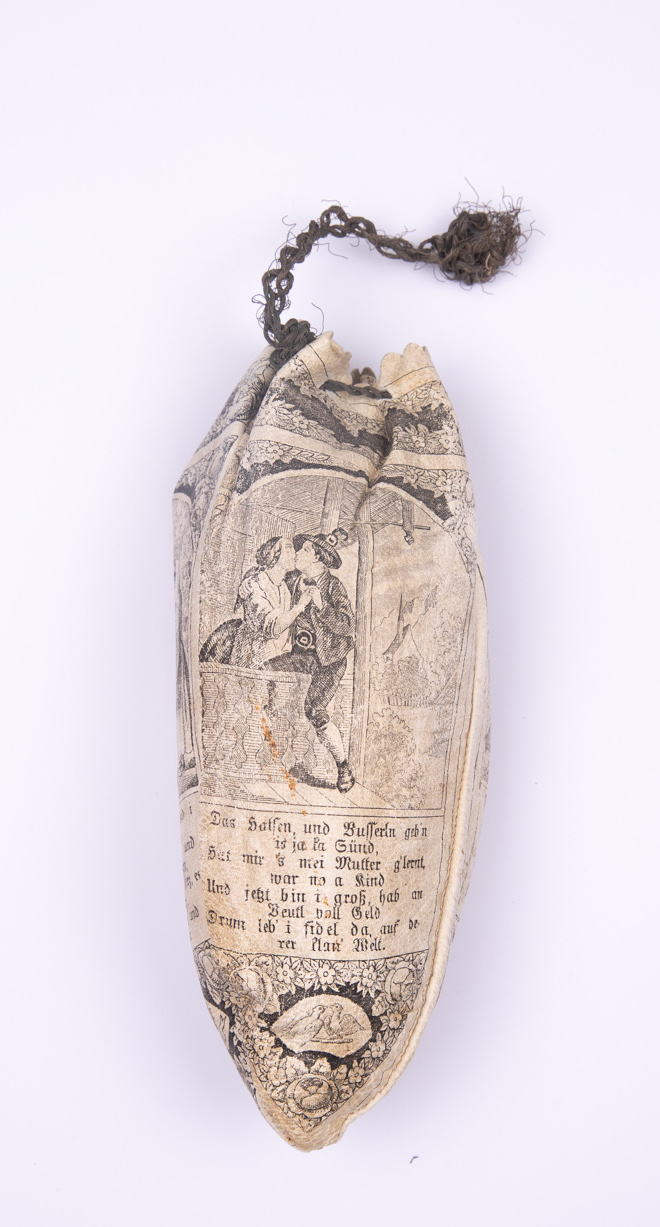 Das Halsen, und Busserln geb'n
is ja ka Sünd,
Hat mir 's mei Mutter g'lernt,
war no a Kind
Und jetzt bin i groß, hab an
Beutl voll Geld
Drum leb' i fidel da, auf de-
rer klan' Welt.